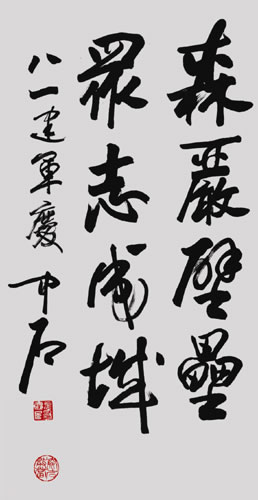 森嚴壁壘
眾志成城
八一建軍慶
中石